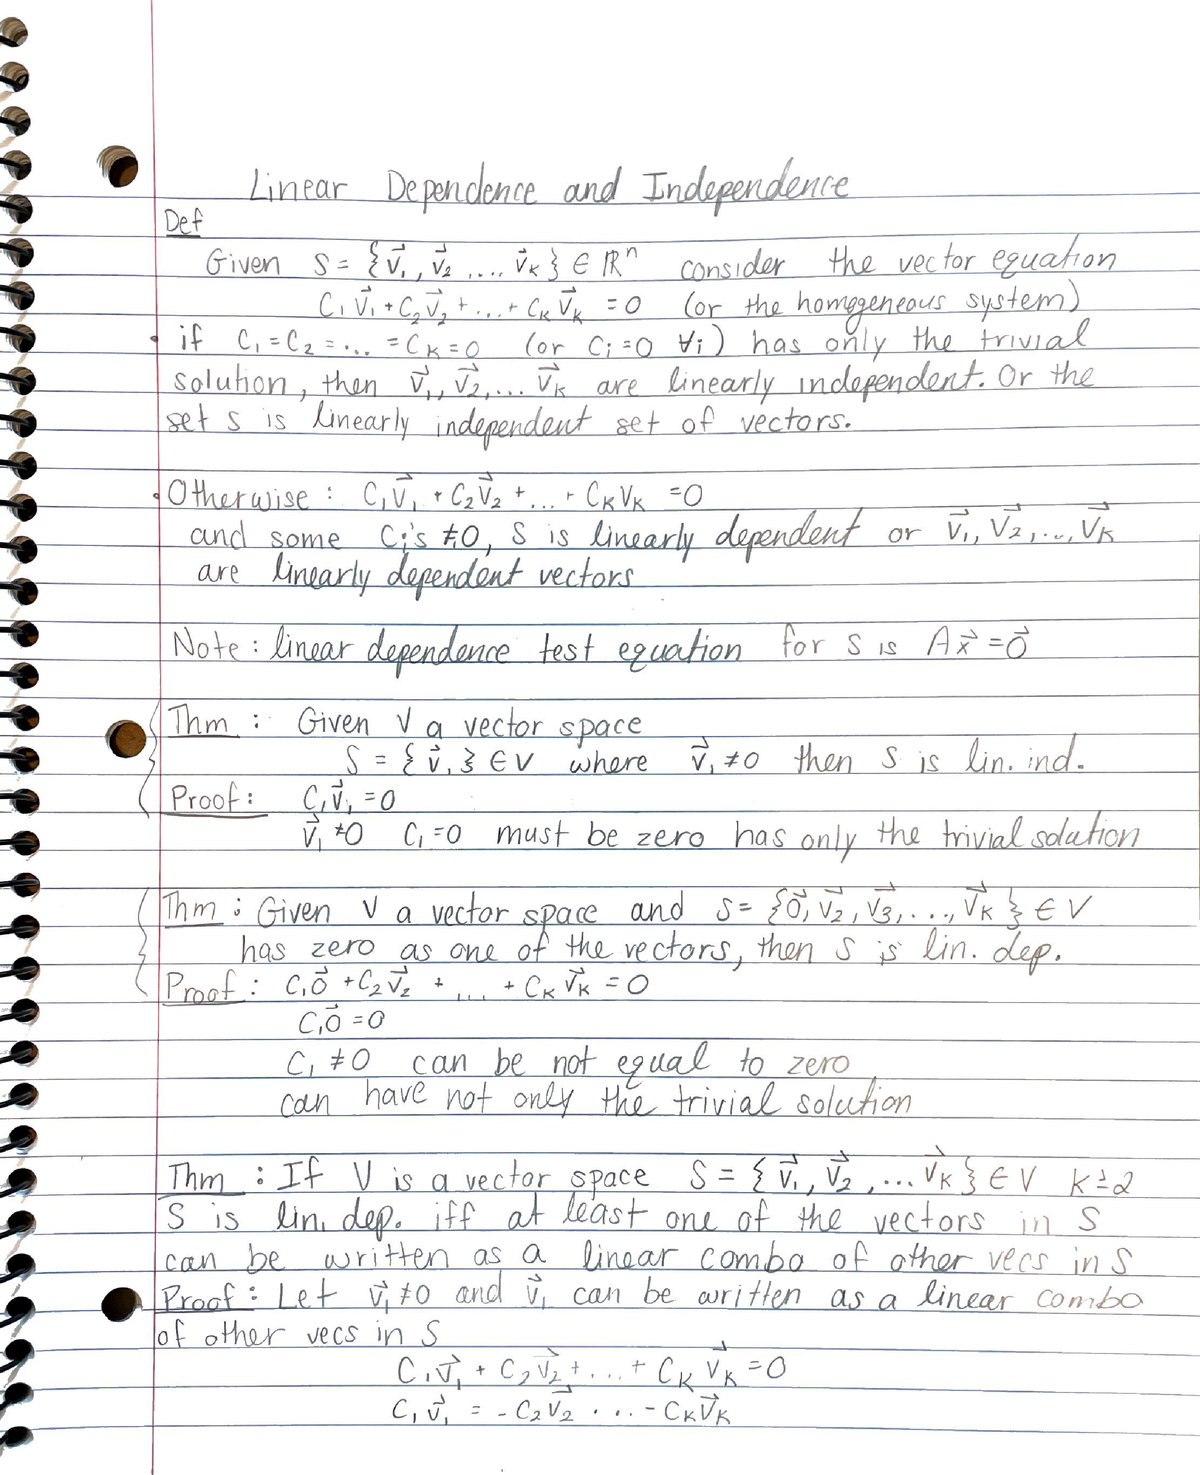 Linear Dependence and Independence
Def
Given S = {v⃗₁, v⃗₂ .... v⃗ₖ} ∈ ℝⁿ consider the vector equation
C₁v⃗₁ + C₂v⃗₂ + ... + Cₖv⃗ₖ = 0 (or the homogeneous system)
• if C₁ = C₂ = ... = Cₖ = 0 (or Cᵢ = 0 ∀i) has only the trivial
solution, then v⃗₁, v⃗₂, ... v⃗ₖ are linearly independent. Or the
set s is linearly independent set of vectors.
• Otherwise : C₁v⃗₁ + C₂v⃗₂ + ... + CₖVₖ = 0
and some Cᵢ's ≠ 0, S is linearly dependent or v⃗₁, v⃗₂, ..., v⃗ₖ
are linearly dependent vectors
Note : linear dependence test equation for S is Ax⃗ = 0⃗
Thm : Given V a vector space
S = {v⃗₁} ∈ V where v⃗₁ ≠ 0 then S is lin. ind.
Proof : C₁v⃗₁ = 0
v⃗₁ ≠ 0 C₁ = 0 must be zero has only the trivial solution
Thm : Given V a vector space and S = {0⃗, v⃗₂, v⃗₃, ..., v⃗ₖ} ∈ V
has zero as one of the vectors, then S is lin. dep.
Proof : C₁0⃗ + C₂v⃗₂ + ... + Cₖv⃗ₖ = 0
C₁0⃗ = 0
C₁ ≠ 0 can be not equal to zero
can have not only the trivial solution
Thm : If V is a vector space S = {v⃗₁, v⃗₂, ... v⃗ₖ} ∈ V k ≥ 2
S is lin. dep. iff at least one of the vectors in S
can be written as a linear combo of other vecs in S
Proof : Let v⃗₁ ≠ 0 and v⃗₁ can be written as a linear combo
of other vecs in S
C₁v⃗₁ + C₂v⃗₂ + ... + Cₖv⃗ₖ = 0
C₁v⃗₁ = - C₂v⃗₂ . ... - Cₖv⃗ₖ